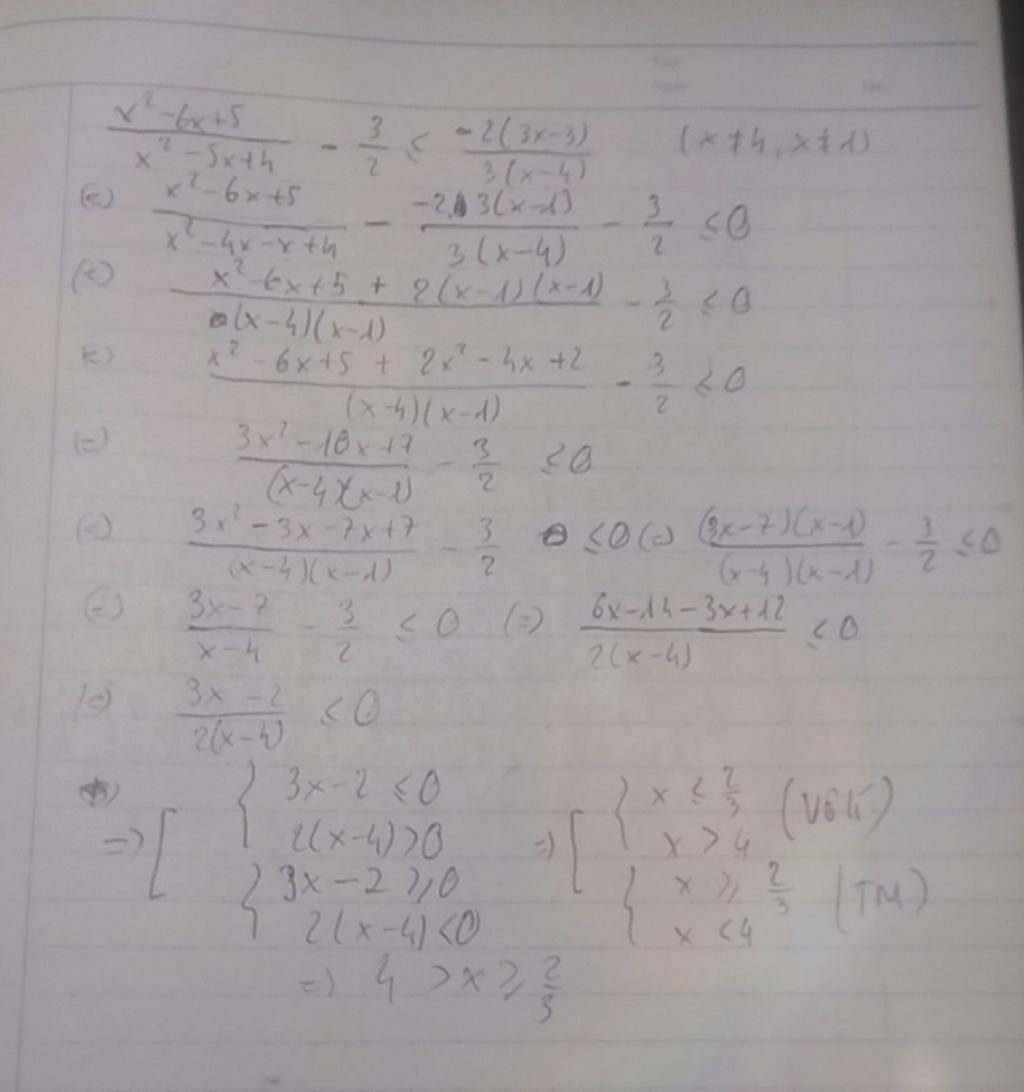 (x² - 6x + 5)/(x² - 5x + 4) - 3/2 ≤ -2(3x - 3)/3(x - 4) (x ≠ 4, x ≠ 1)
(=) (x² - 6x + 5)/(x² - 4x - x + 4) - -2.3(x - 1)/3(x - 4) - 3/2 ≤ 0
(=) (x² - 6x + 5 + 2(x - 1)(x - 1))/(x - 4)(x - 1) - 3/2 ≤ 0
(=) (x² - 6x + 5 + 2x² - 4x + 2)/(x - 4)(x - 1) - 3/2 ≤ 0
(=) (3x² - 10x + 7)/(x - 4)(x - 1) - 3/2 ≤ 0
(=) (3x² - 3x - 7x + 7)/(x - 4)(x - 1) - 3/2 ≤ 0 (=) (3x - 7)(x - 1)/(x - 4)(x - 1) - 3/2 ≤ 0
(=) (3x - 7)/(x - 4) - 3/2 ≤ 0 (=) (6x - 14 - 3x + 12)/2(x - 4) ≤ 0
(=) (3x - 2)/2(x - 4) ≤ 0
=) [ { 3x - 2 ≤ 0 =) [ { x ≤ 2/3 (Vô lí)
2(x - 4) > 0 x > 4
{ 3x - 2 ≥ 0 { x ≥ 2/3 (TM)
2(x - 4) < 0 x < 4
=) 4 > x ≥ 2/3